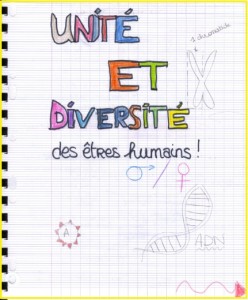 UNITÉ
1 chromosome
ET
DIVERSITÉ
des êtres humains !
♂/♀
A
ADN